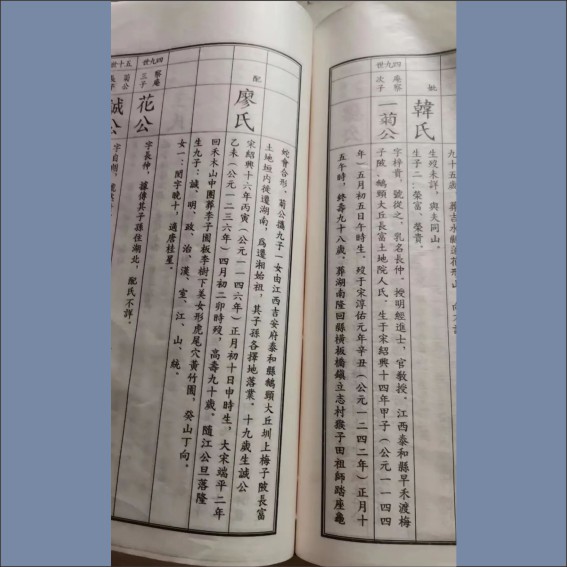 九十五歲。葬吉水縣蓮花形山
妣
韓氏
生歿未詳，與夫同山。
生子二：榮富、榮貴。
四九世
庵察
次子
一菊公
字梓貴，號從之，乳名長仲，授明經進士，官教授。江西泰和縣早禾渡梅
子陂、鵝頸大丘長富土地院人氏。生于宋紹興十四年甲子（公元一一四四
年）五月初五日午時生，歿于宋淳佑元年辛丑（公元一二四二年）正月十
五午時，終壽九十八歲。葬湖南隆回縣橫板橋鎮立志村猴子田祖師踏座龜
蛇會合形。菊公攜九子一女由江西吉安府泰和縣鵝頸大丘圳上梅子陂長富
土地垣内後遷湖南，爲遷湘始祖，其子孫各擇地落業。十九歲生誠公
配
廖氏
宋紹興十六年丙寅（公元一一四六年）正月初十日申時生，大宋端平二年
乙未（公元一二三六年）四月初二卯時歿，高壽九十歲。隨江公旦落隆
回禾木山中團葬李子園板李樹下美女形虎尾穴黃竹園，癸山丁向。
生九子：誠、明、政、治、漢、室、江、山、統。
女一：閏字晚十，適唐桂星。
四九世
察庵
三子
花公
字長仲，據傳其子孫住湖北，配氏不詳。
五十世
菊公
誠公